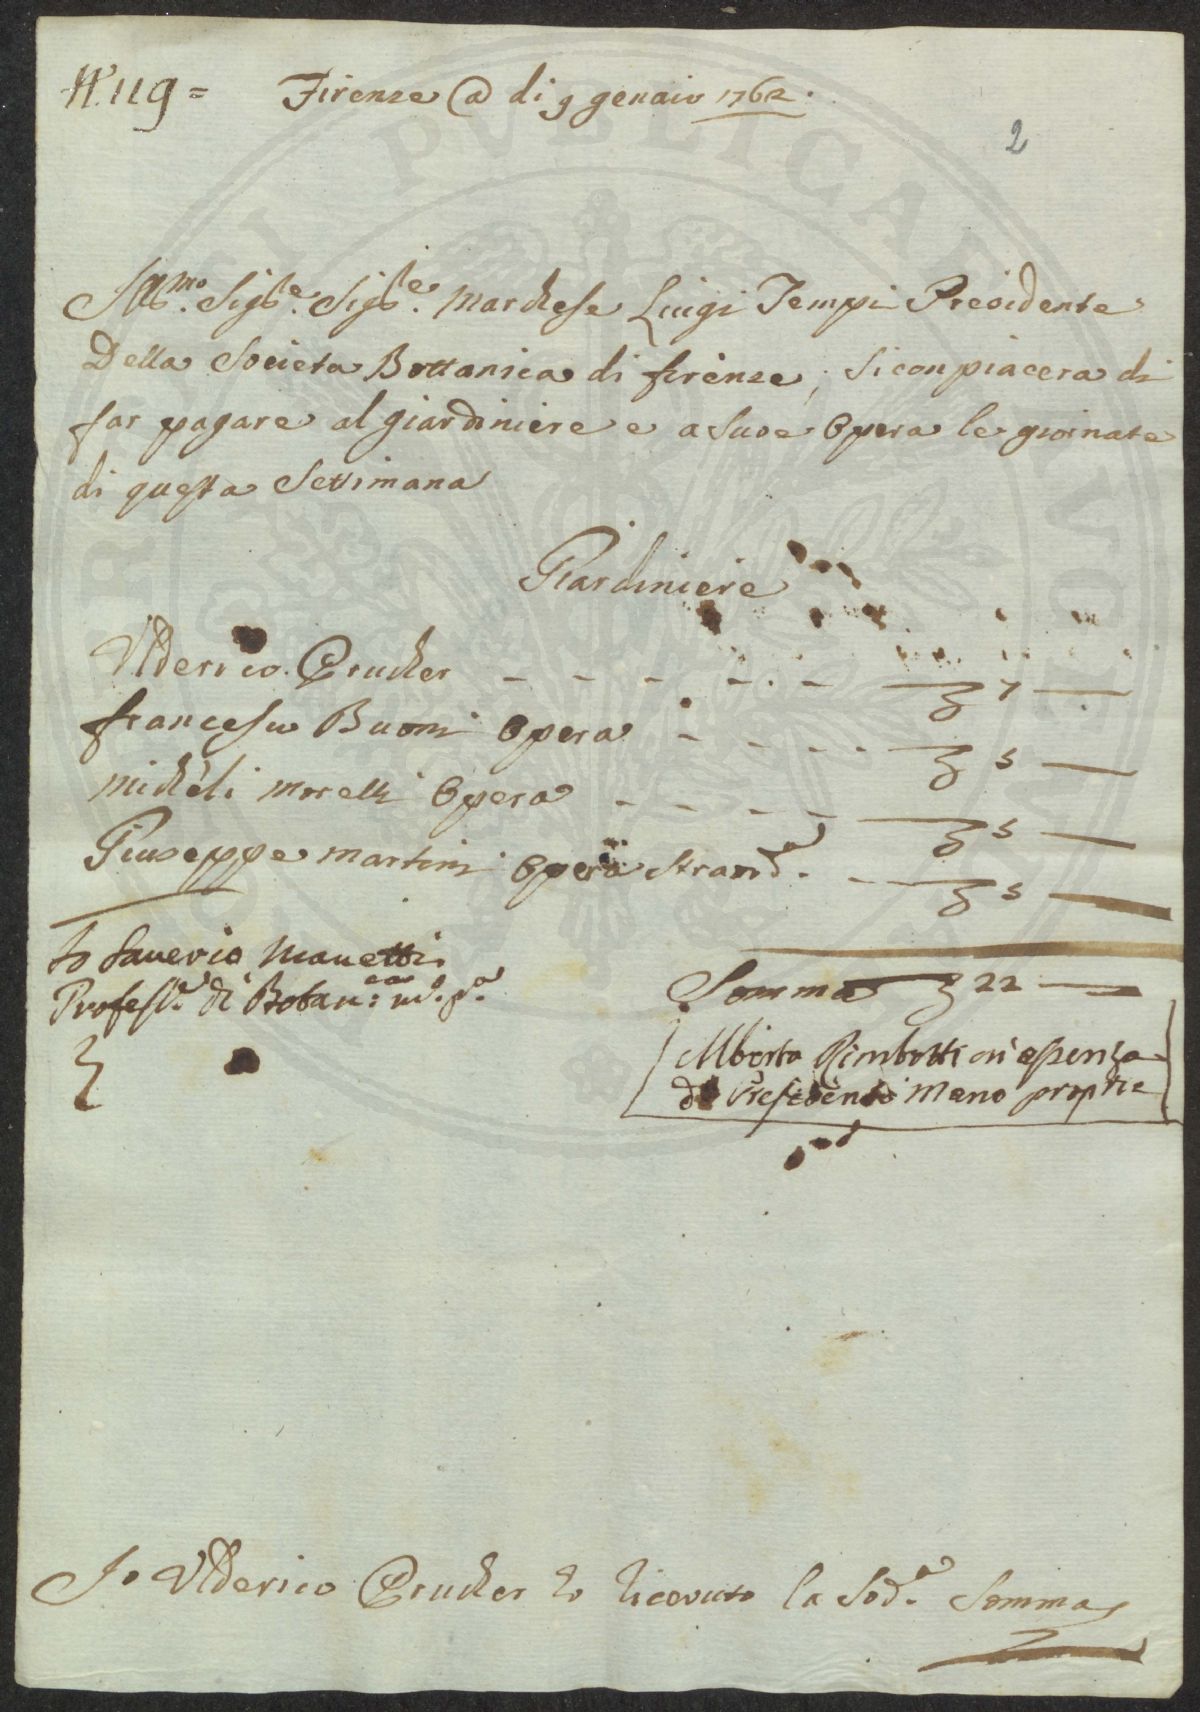 N.° 119 = Firenze @ di 9 genaio 1762.
2
Ill:mo Sig:re Sig:re Marchese Luigi Tempi Presidente
Della Societa Bottanica di firenze, si conpiacera di
far pagare al giardiniere e a suoe Opera le giornate
di questa Settimana
Giardiniere
Ulderico Prucher 7
francescho Buoni Opera 5
micheli morelli Opera 5
Giuseppe martini Opera Strard.a 5
Somma 22
Io Saverio Manetti
Profess.e di Botan:ca m.o p.a
Alberto Rimbotti in assenza
di Presidente Mano propria
Io Ulderico Prucher ho ricevuto la Sod.a Somma